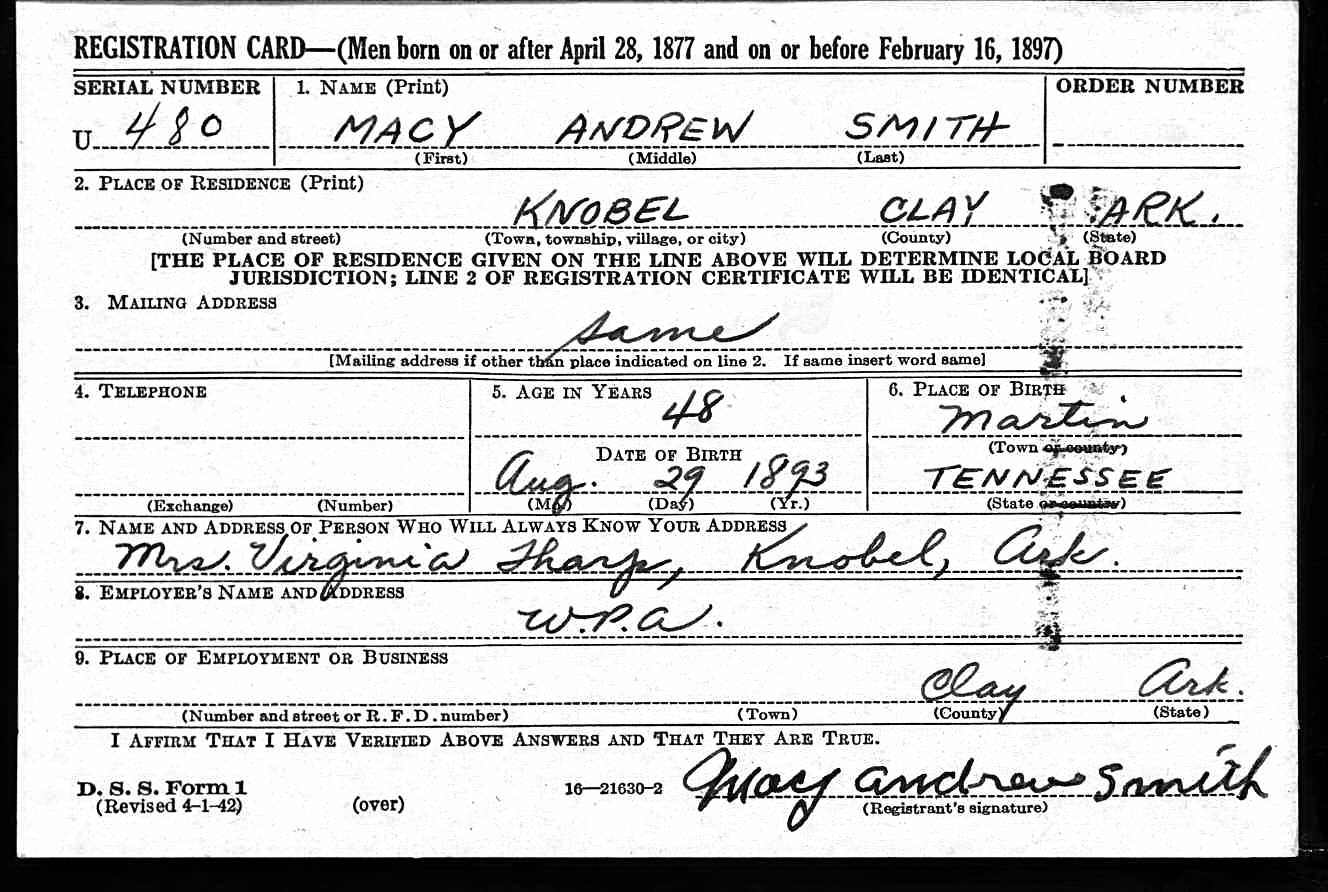 REGISTRATION CARD—(Men born on or after April 28, 1877 and on or before February 16, 1897)
SERIAL NUMBER 1. NAME (Print) ORDER NUMBER
U 480 MACY ANDREW SMITH
(First) (Middle) (Last)
2. PLACE OF RESIDENCE (Print)
KNOBEL CLAY ARK.
(Number and street) (Town, township, village, or city) (County) (State)
[THE PLACE OF RESIDENCE GIVEN ON THE LINE ABOVE WILL DETERMINE LOCAL BOARD
JURISDICTION; LINE 2 OF REGISTRATION CERTIFICATE WILL BE IDENTICAL]
3. MAILING ADDRESS
same
[Mailing address if other than place indicated on line 2. If same insert word same]
4. TELEPHONE 5. AGE IN YEARS 6. PLACE OF BIRTH
48 Martin
DATE OF BIRTH (Town or county)
Aug. 29 1893 TENNESSEE
(Exchange) (Number) (Mo.) (Day) (Yr.) (State or country)
7. NAME AND ADDRESS OF PERSON WHO WILL ALWAYS KNOW YOUR ADDRESS
Mrs. Virginia Tharp, Knobel, Ark.
8. EMPLOYER'S NAME AND ADDRESS
W.P.A.
9. PLACE OF EMPLOYMENT OR BUSINESS
Clay Ark.
(Number and street or R. F. D. number) (Town) (County) (State)
I AFFIRM THAT I HAVE VERIFIED ABOVE ANSWERS AND THAT THEY ARE TRUE.
D. S. S. Form 1 16—21630-2 Macy Andrew Smith
(Revised 4-1-42) (over) (Registrant's signature)